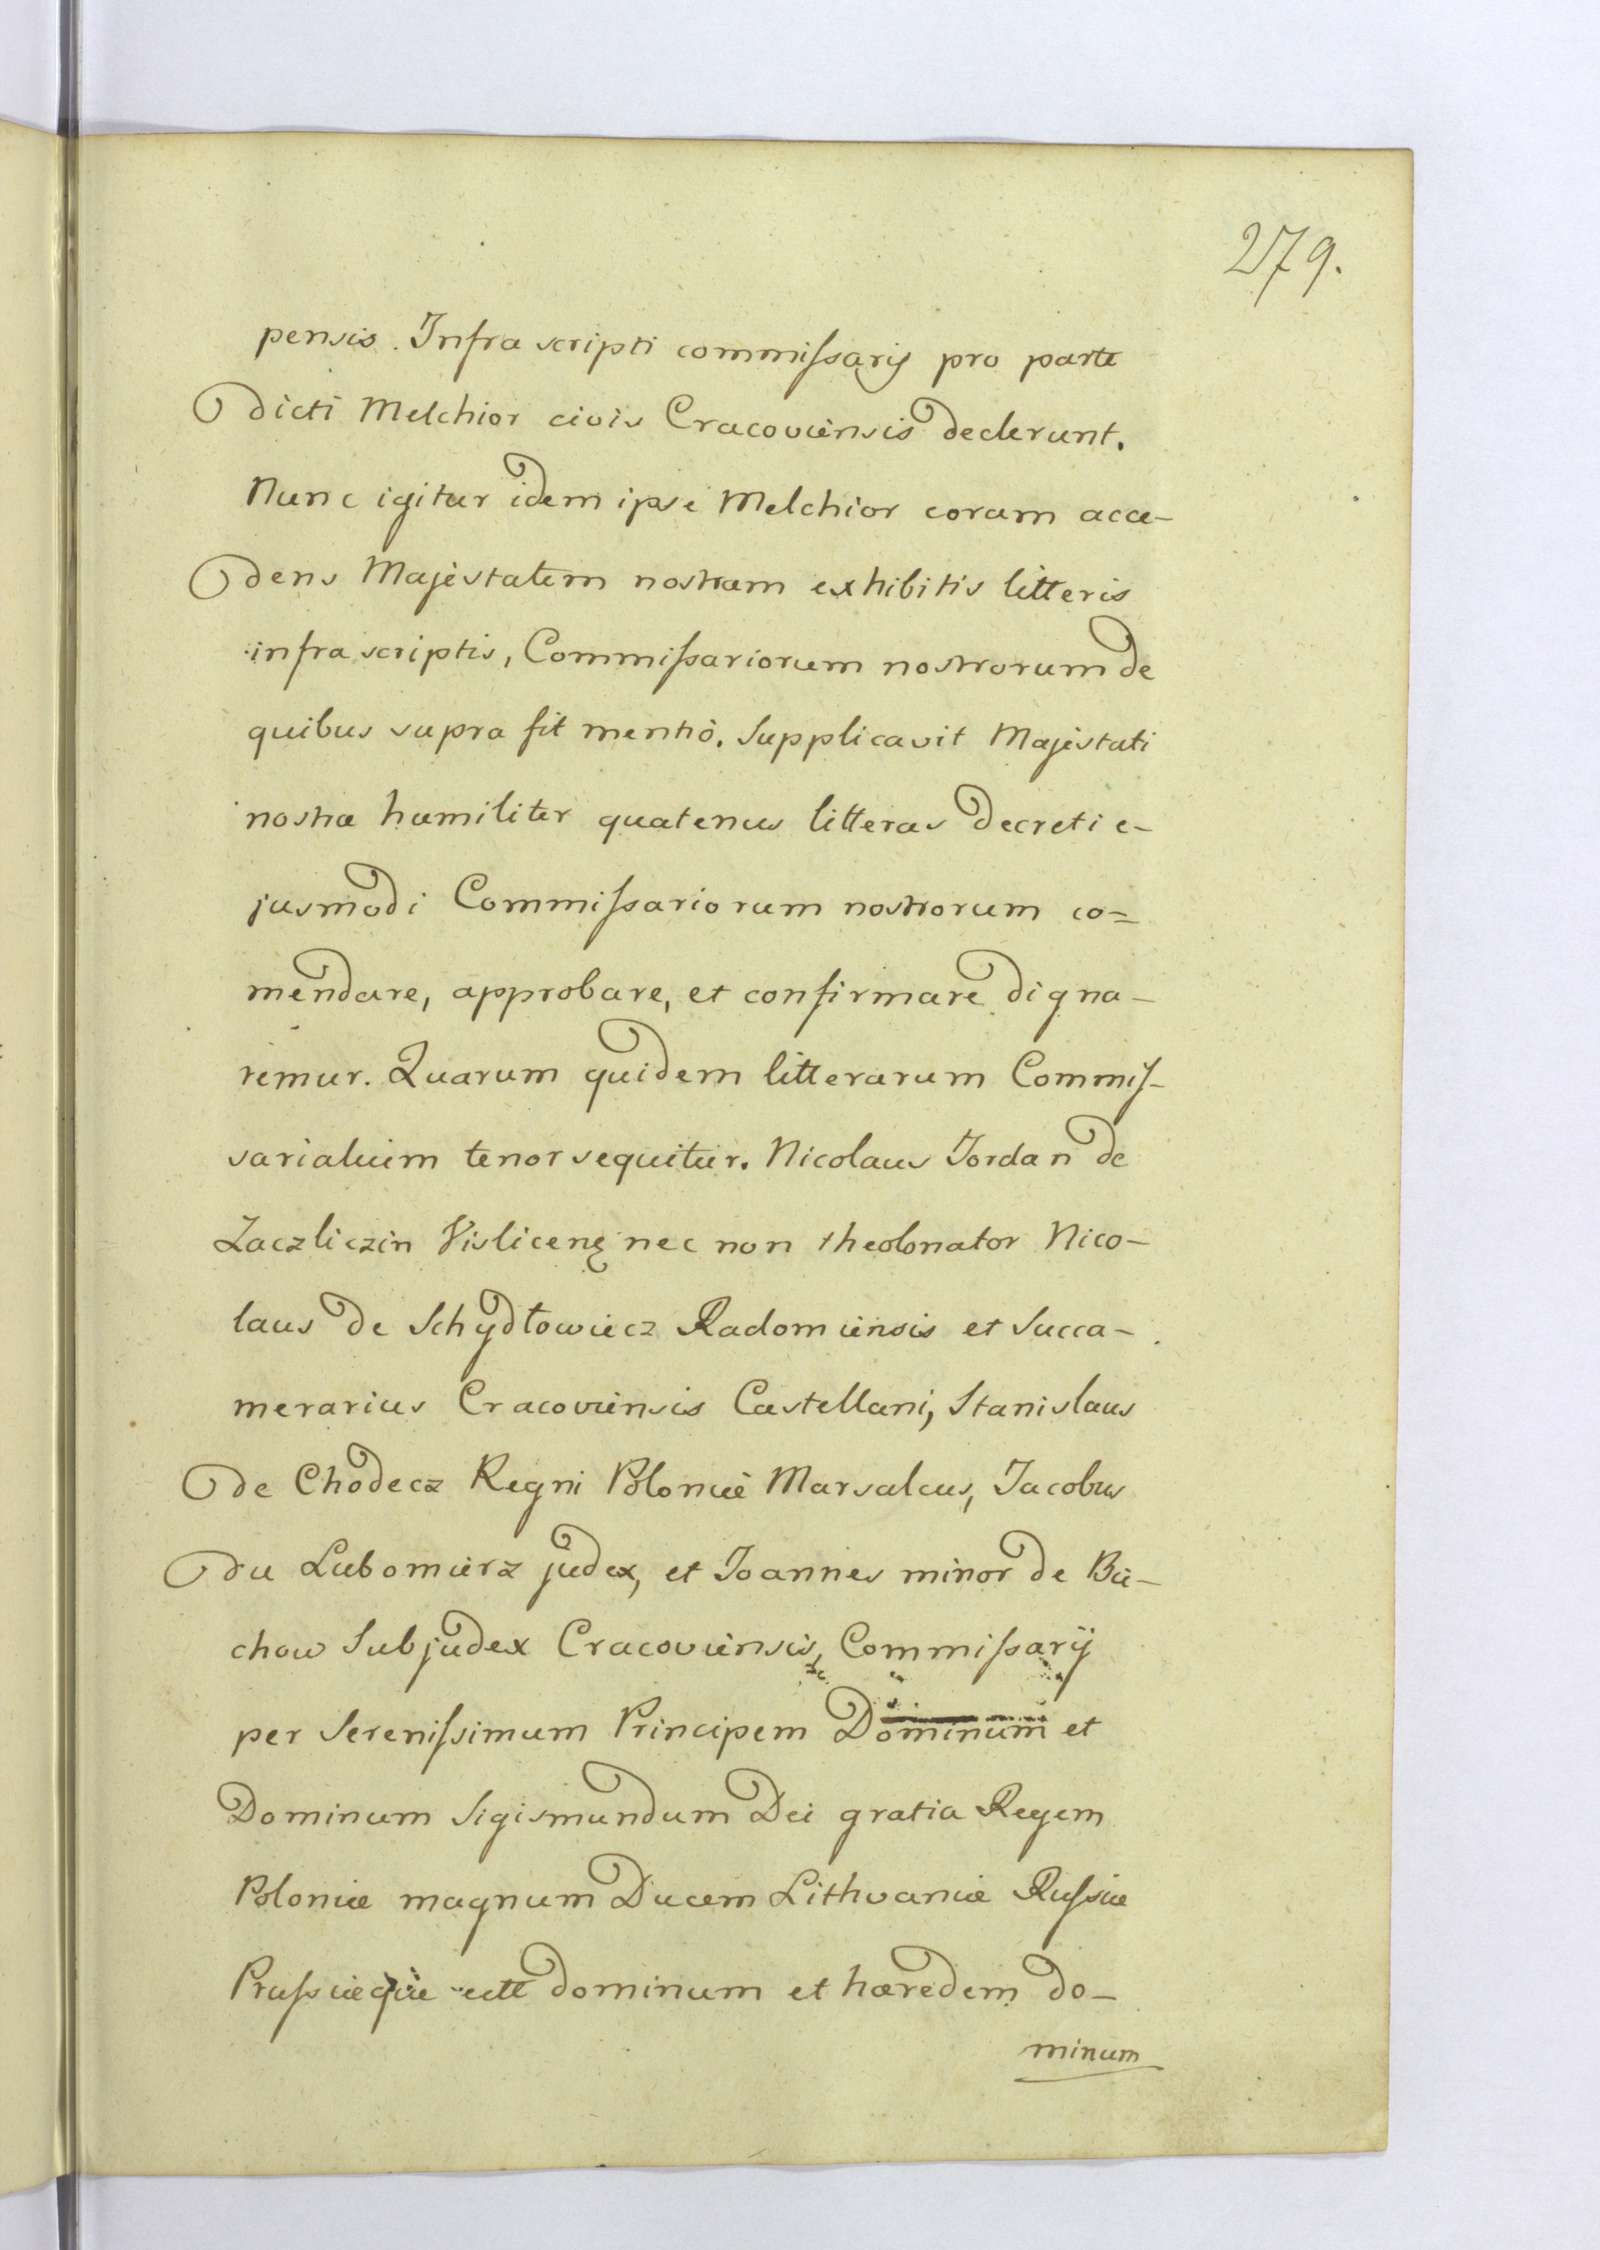 279.
pensis. Infra scripti commissarij pro parte
dicti Melchior civis Cracoviensis dederunt.
Nunc igitur idem ipse Melchior coram acce-
dens Majestatem nostram exhibitis litteris
infra scriptis, Commissariorum nostrorum de
quibus supra fit mentio. Supplicavit Majestati
nostræ humiliter quatenus litteras decreti e-
jusmodi Commissariorum nostrorum co=
mendare, approbare, et confirmare digna-
remur. Quarum quidem litterarum Commis-
sarialium tenor sequitur. Nicolaus Jordan de
Zaczliczin Vislicenę nec non theolonator Nico-
laus de Schydłowiecz Radomiensis et Succa-
merarius Cracoviensis Castellani, Stanislaus
de Chodecz Regni Poloniæ Marsalcus, Jacobus
de Lubomierz judex, et Joannes minor de Bie-
chow Subjudex Cracoviensis, Commissarij
per Serenissimum Principem Dominum et
Dominum Sigismundum Dei gratia Regem
Poloniæ magnum Ducem Lithvaniæ Russiæ
Prussiæque dominum et hæredem do-
minum